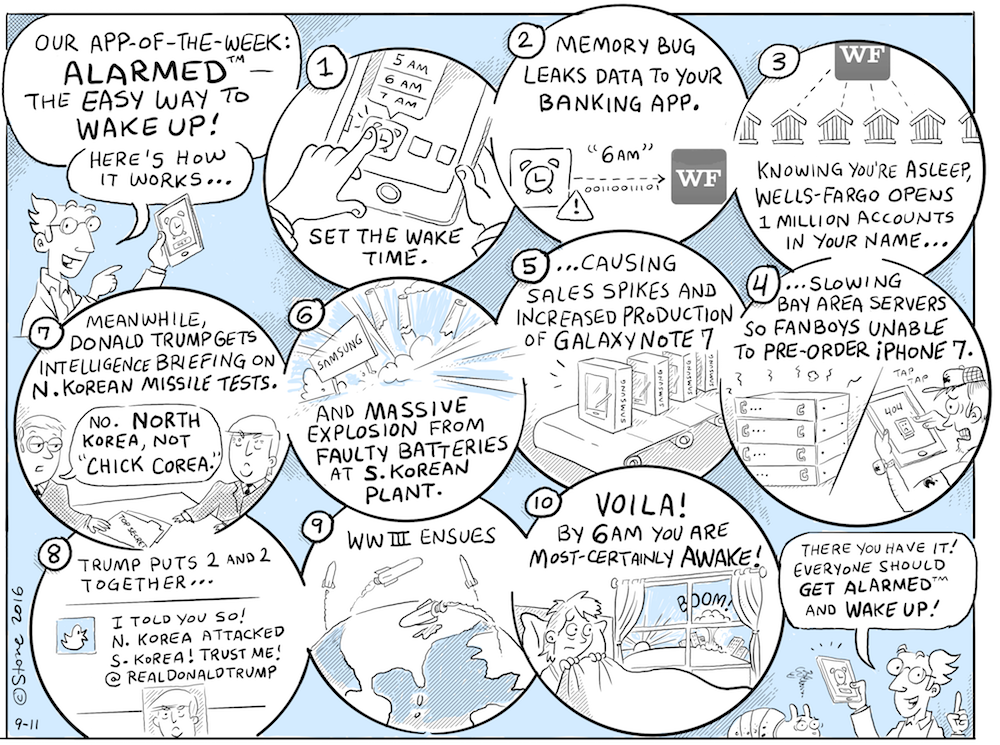 OUR APP-OF-THE-WEEK:
ALARMED™ —
THE EASY WAY TO
WAKE UP!
HERE'S HOW
IT WORKS...
1
5 AM
6 AM
7 AM
SET THE WAKE
TIME.
2
MEMORY BUG
LEAKS DATA TO YOUR
BANKING APP.
"6AM"
00110011101
WF
!
3
WF
KNOWING YOU'RE ASLEEP,
WELLS-FARGO OPENS
1 MILLION ACCOUNTS
IN YOUR NAME...
4
...SLOWING
BAY AREA SERVERS
SO FANBOYS UNABLE
TO PRE-ORDER iPHONE 7.
TAP
TAP
TAP
404
5
...CAUSING
SALES SPIKES AND
INCREASED PRODUCTION
OF GALAXY NOTE 7
SAMSUNG
SAMSUNG
SAMSUNG
SAMSUNG
6
SAMSUNG
AND MASSIVE
EXPLOSION FROM
FAULTY BATTERIES
AT S. KOREAN
PLANT.
7
MEANWHILE,
DONALD TRUMP GETS
INTELLIGENCE BRIEFING ON
N. KOREAN MISSILE TESTS.
NO. NORTH
KOREA, NOT
"CHICK COREA."
TOP SECRET
8
TRUMP PUTS 2 AND 2
TOGETHER...
I TOLD YOU SO!
N. KOREA ATTACKED
S. KOREA! TRUST ME!
@REALDONALDTRUMP
9
WW III ENSUES
10
VOILA!
BY 6AM YOU ARE
MOST-CERTAINLY AWAKE!
BOOM!
THERE YOU HAVE IT!
EVERYONE SHOULD
GET ALARMED™
AND WAKE UP!
©Stone 2016
9-11